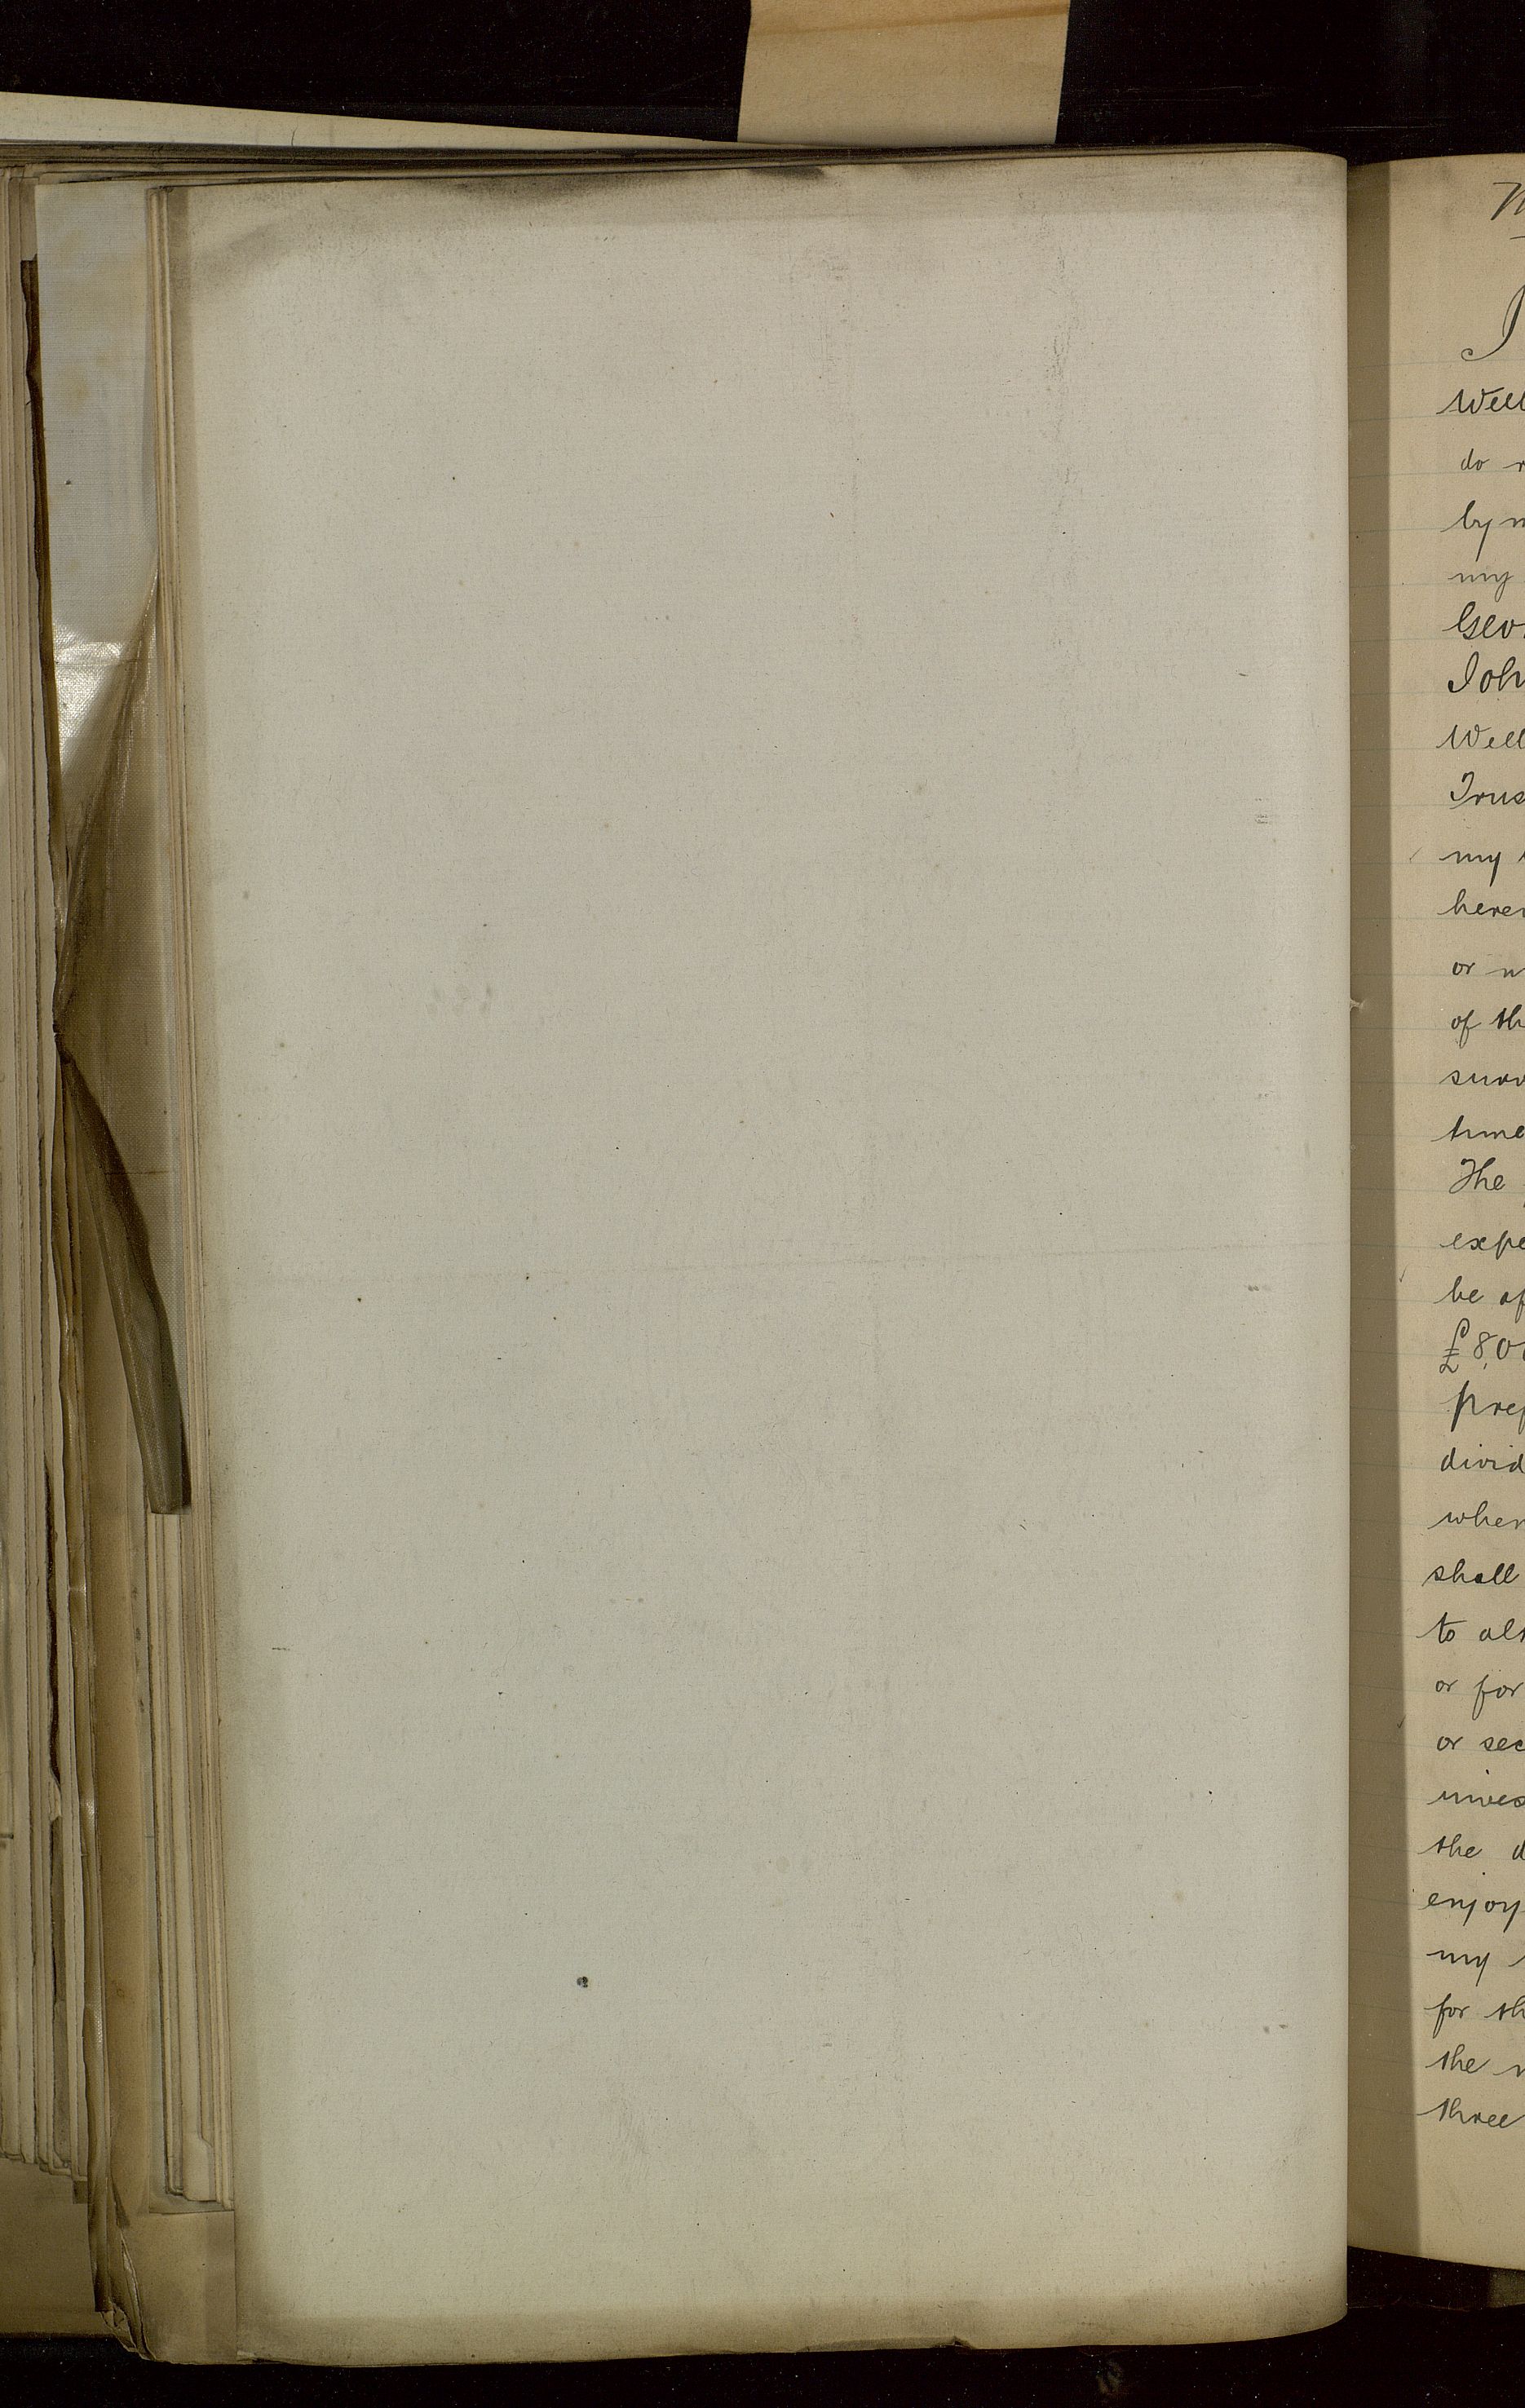 I
Well
do
by
my
Geo
Joh
Well
Trus
my
here
or
of th
surv
time
The
expe
be of
£800
pref
divid
when
shall
to alt
or for
or sec
inves
the d
enjoy
my
for th
the
three